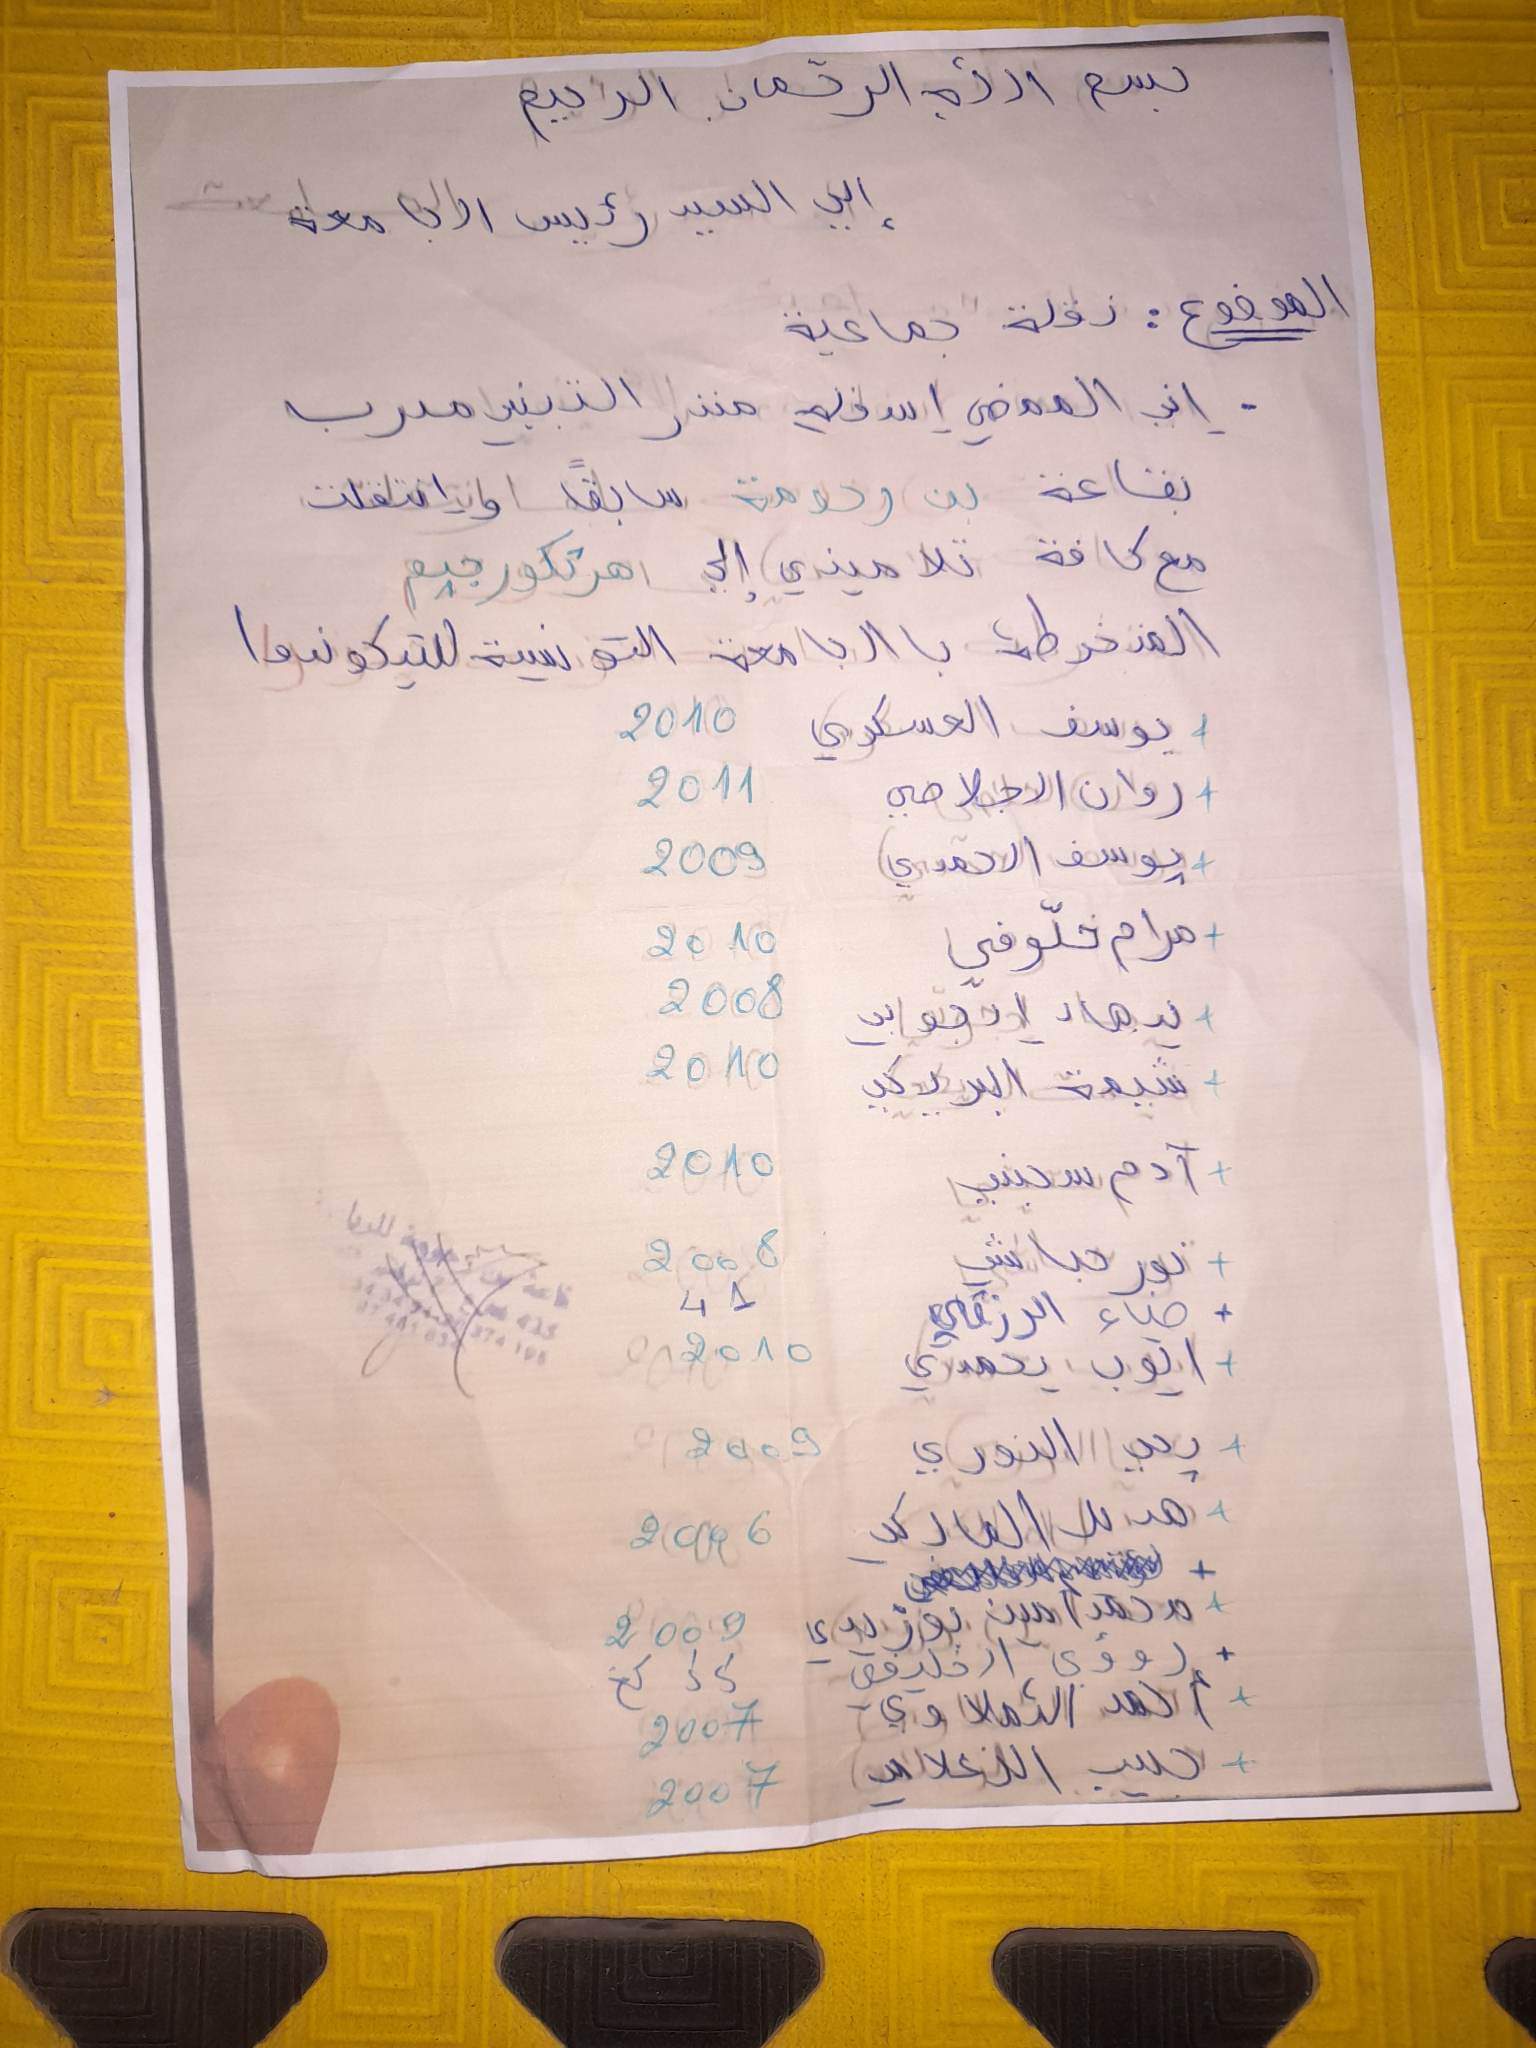 بسم الله الرحمان الرحيم
إلى السيد رئيس الجامعة
الموضوع : نقلة جماعية
- إني الممضي اسفله منذر التبيني مدرب
بقاعة بن رحومة سابقًا وإنتقلت
مع كافة تلاميذي إلى مركور جيم
المنخرطة بالجامعة التونسية للتيكوندوا
+ يوسف العسكري 2010
+ روان الجلاصي 2011
+ يوسف الاحمدي 2009
+ مرام خلّوفي 2010
+ نرهان 2008
+ شيمة البريكي 2010
+ آدم سحبني 2010
+ نور حباشي 2008
+ ضياء الرزقي 41
+ ايوب يحمدي 2010
+ يحي النوري 2009
+ هديل المباركي 2006
+
+ محمد آمين بوزيدي 2009
+ رؤى الخليفي 55 كغ
+ أحمد الثملاوي 2007
+ حبيب الزغلامي 2007